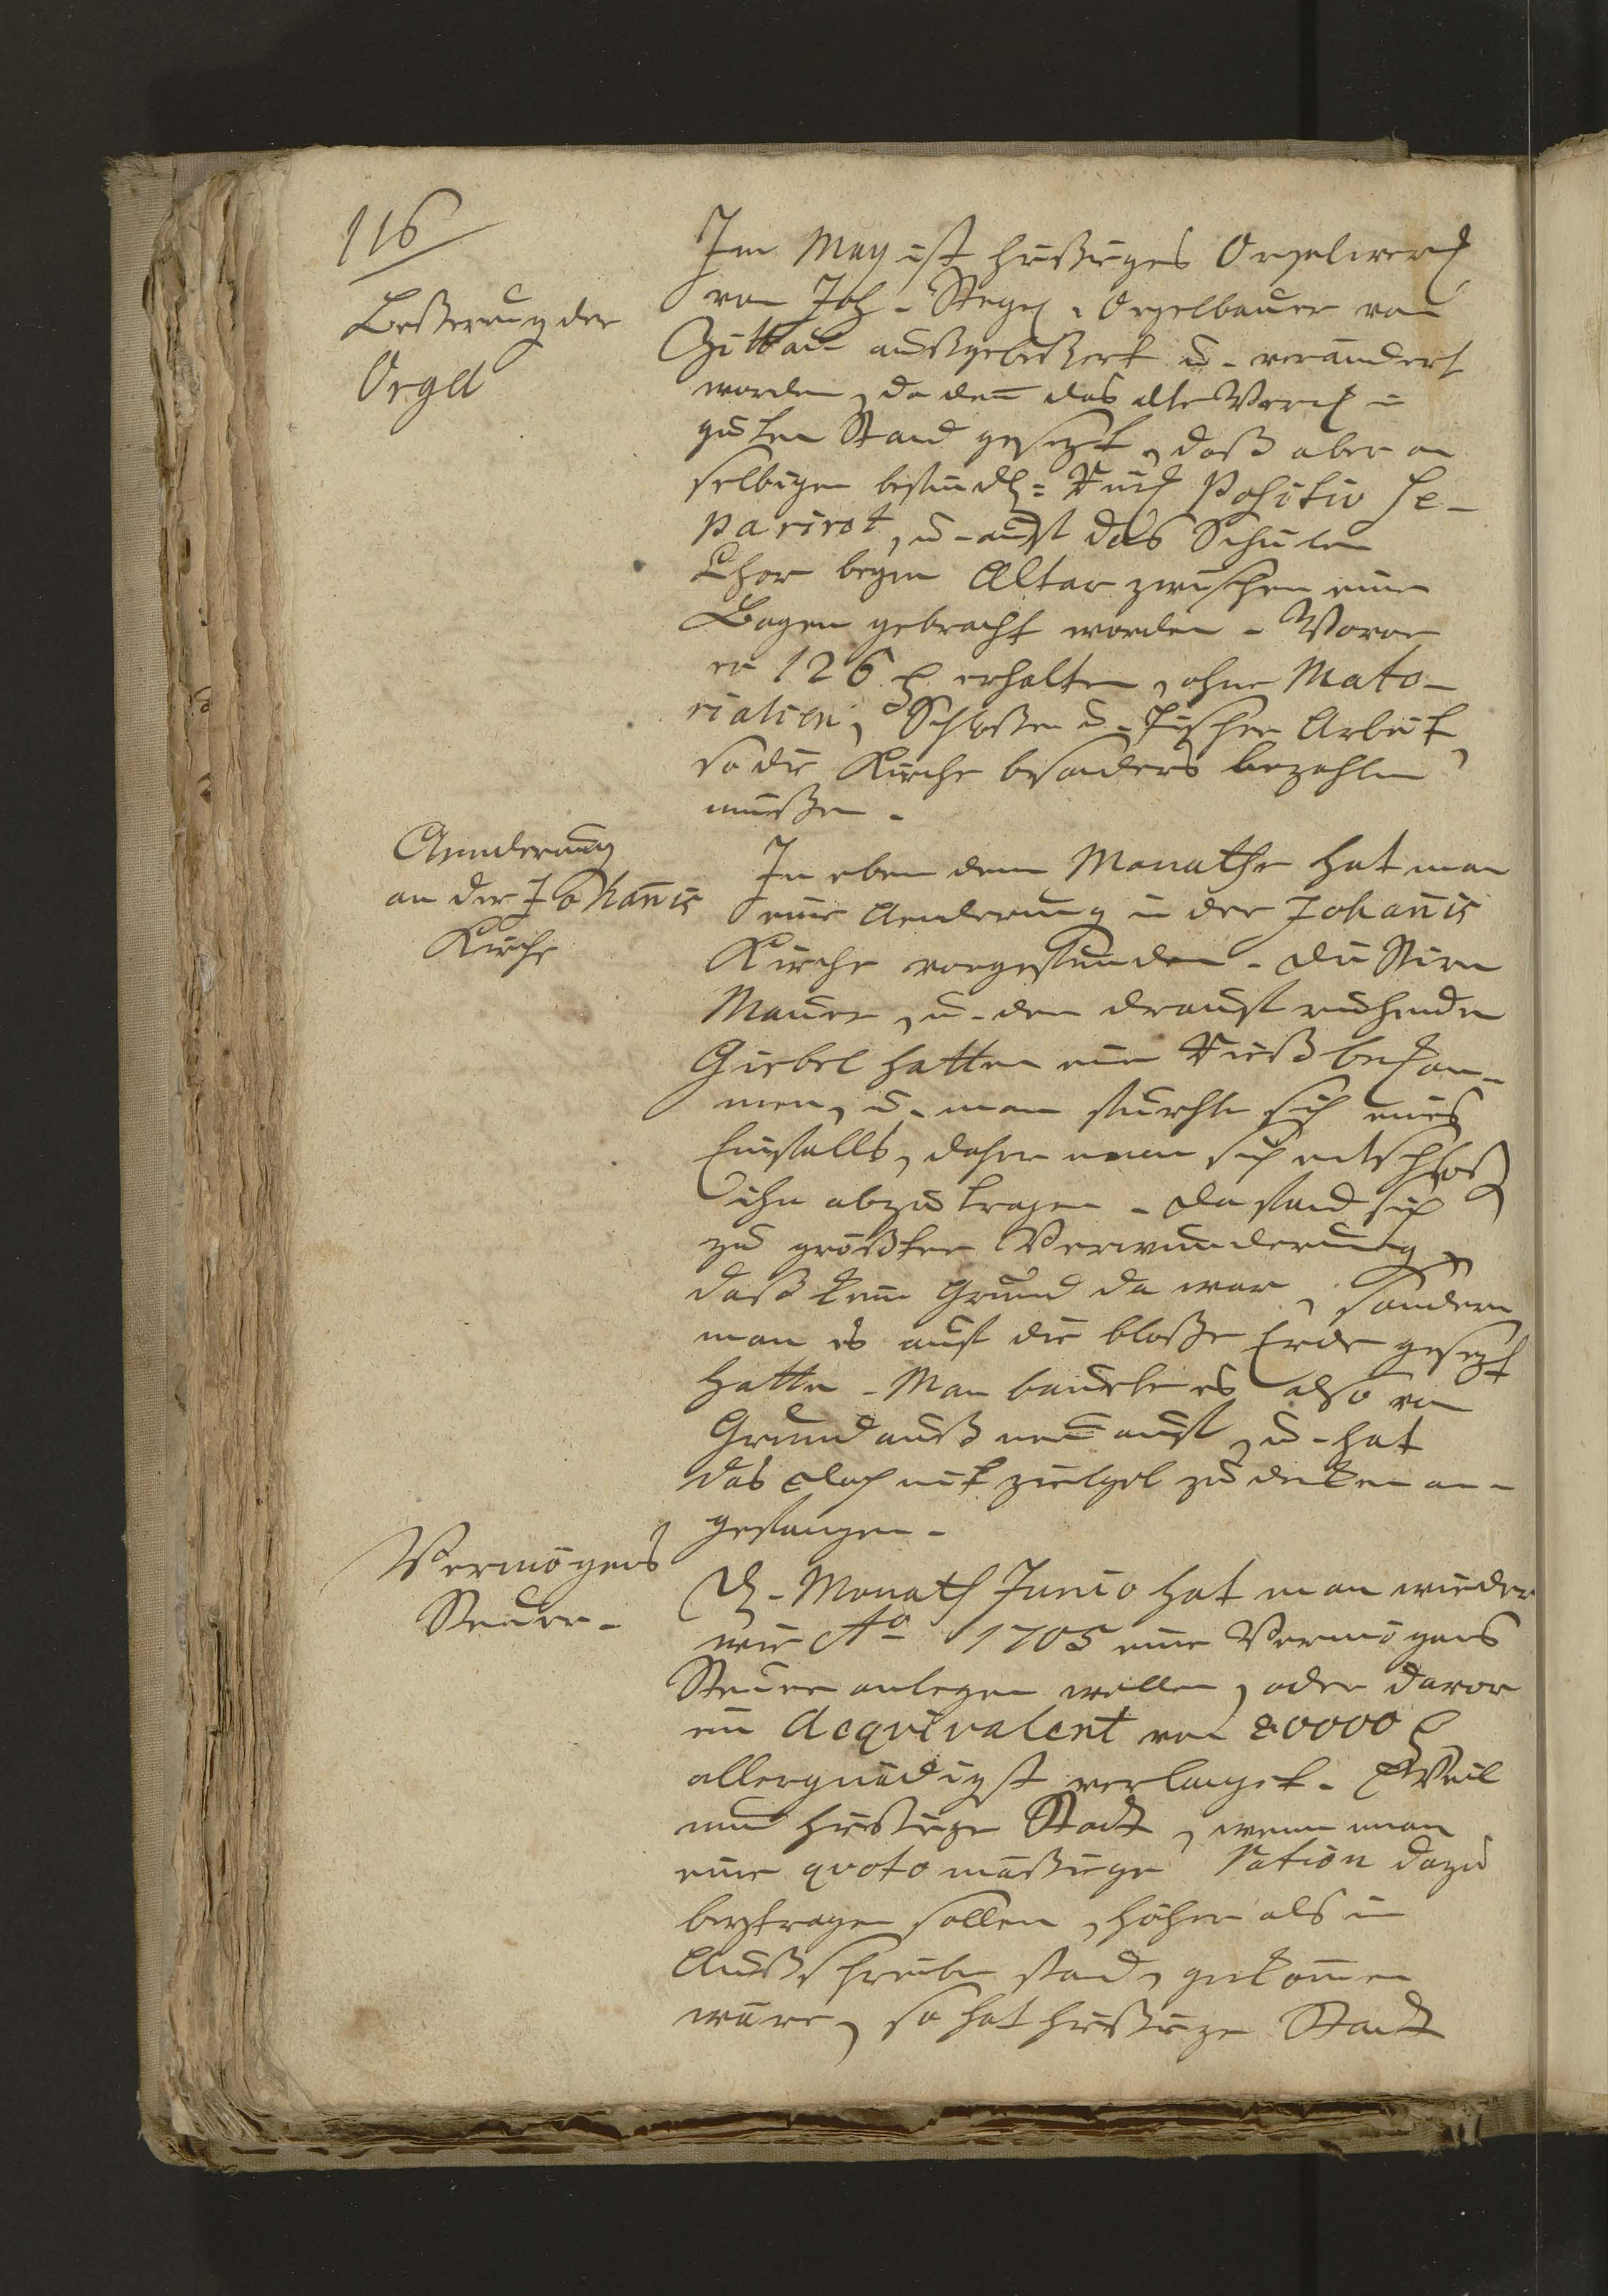 116
Beßerung der
Orgel
Im May ist hiesiges Orgelwerk
von Joh. Orgelbauer von
Zittau außgebeßert u. verändert
worden, da den̄ das alte Werck in
guten Stand gesezt, daß aber an
selbigen befindl: Rück Positiv se-
pariret, u. auf das Schüler
Chor beym Altar zwischen einen
Bogen gebracht worden. Wovor
er 126 erhalten, ohne Mate-
rialien, Schloßer u. Tischer Arbeit
so die Kirche besonders bezahlen
müßen.
Aenderung
an der Johan̄is
Kirche
In eben dem Monathe hat man
eine Aenderung in der Johan̄is
Kirche vorgefunden. Die Stirn
Mauer, u. den drauf ruhenden
Giebel hatten ein Riß bekom-
men, u. man fürchte sich eines
Einfalls, daher man sich entschloß
ihn abzutragen. Da fand sich
zu größter Verwunderung,
daß kein Grund da war, sondern
man es auf die bloße Erde gesezt
hatte. Man bauete es also von
Grund auß neu auf, u. hat
das Dach mit ziegel zu decken an-
gefangen.
Vermögens
Steuer.
Monath Junio hat man wieder
wie Ao 1705 eine Vermögens
Steuer anlegen wollen, oder davor
ein Aequivalent von 80000
allergnädigst verlanget. Weil
nun hiesige Stadt, wenn man
eine quoto mäßige ration dazu
beytragen sollen, höher als im
Außschreiben stand, gekom̄en
wäre, so hat hiesige Stadt